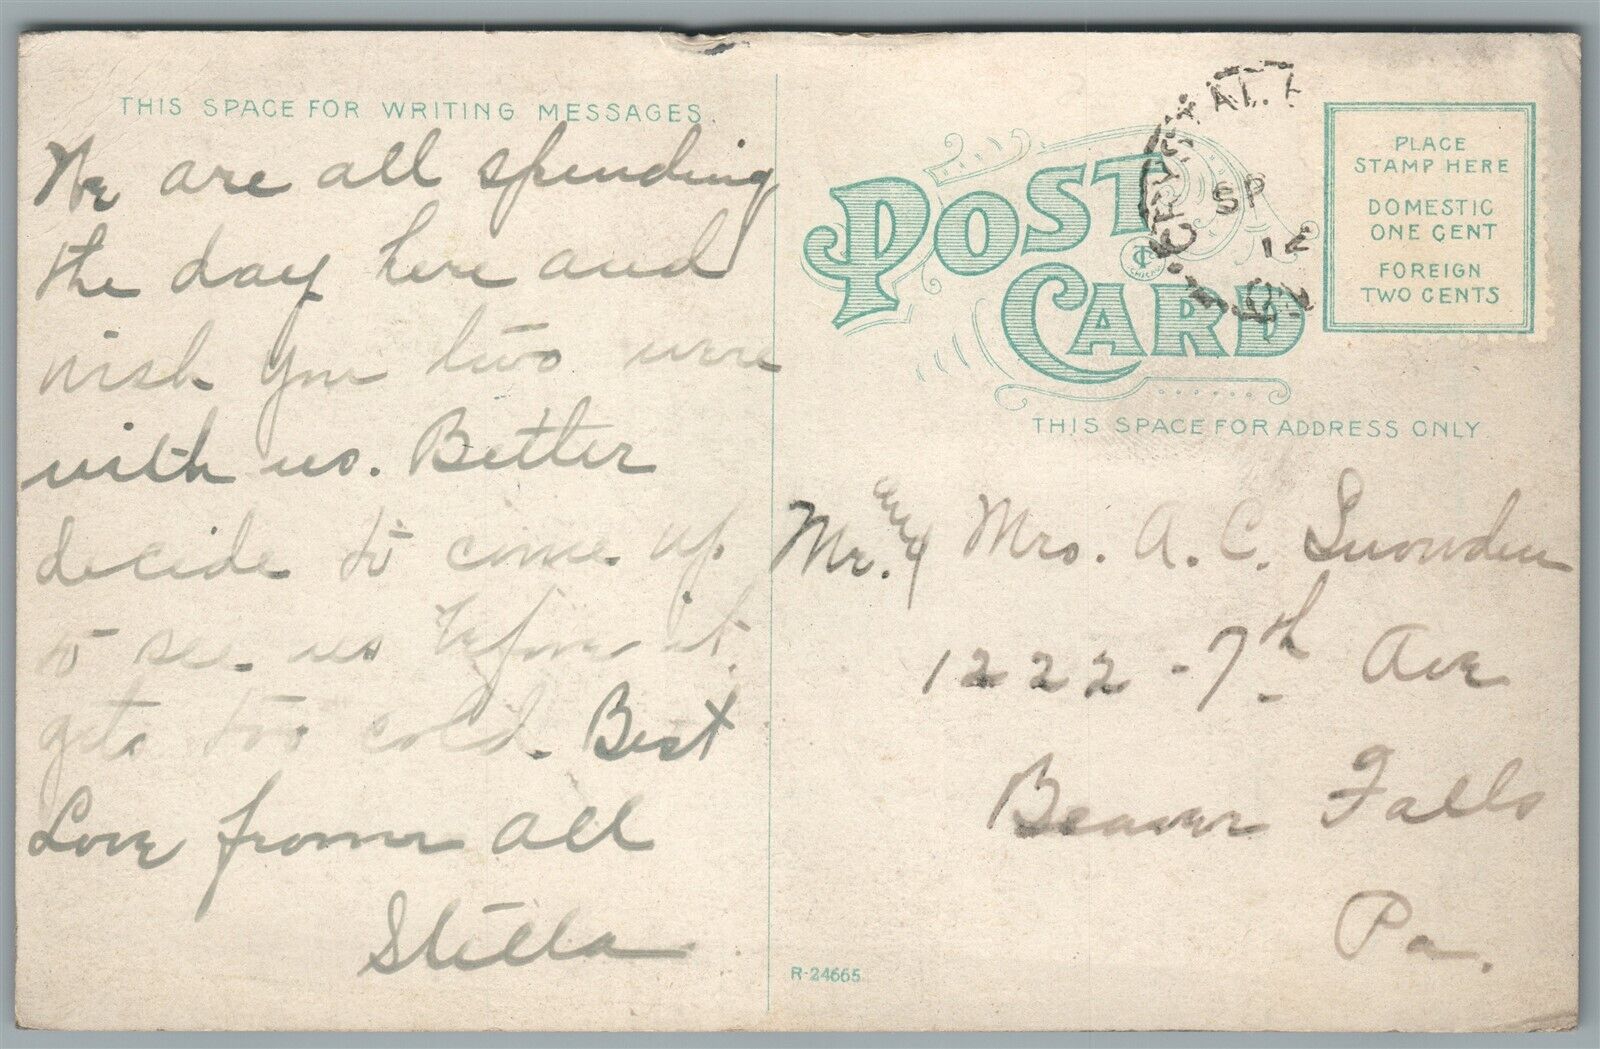 THIS SPACE FOR WRITING MESSAGES.
We are all spending
the day here and
wish you two were
with us. Better
decide to come up
to see us before it
gets too cold. Best
Love from all
Stella
POST
CARD
PLACE
STAMP HERE
DOMESTIC
ONE CENT
FOREIGN
TWO CENTS
SP
12
THIS SPACE FOR ADDRESS ONLY
Mr. and Mrs. A. C. Snowden
1222 - 7th Ave
Beaver Falls
Pa.
R-24665